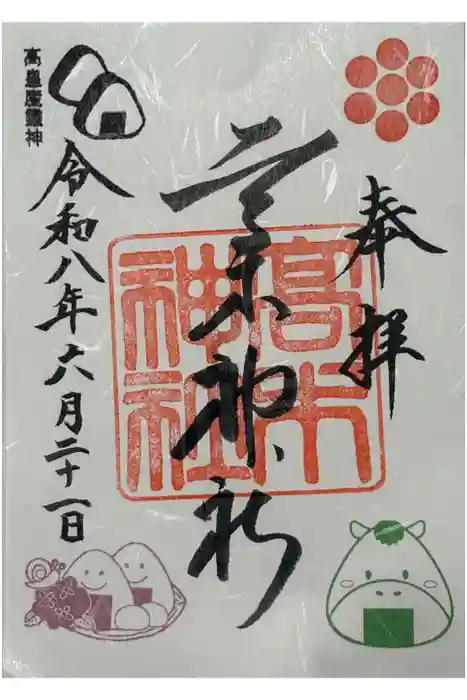 奉拝
高木神社
高木
神社
令和八年六月二十一日
高皇産靈神